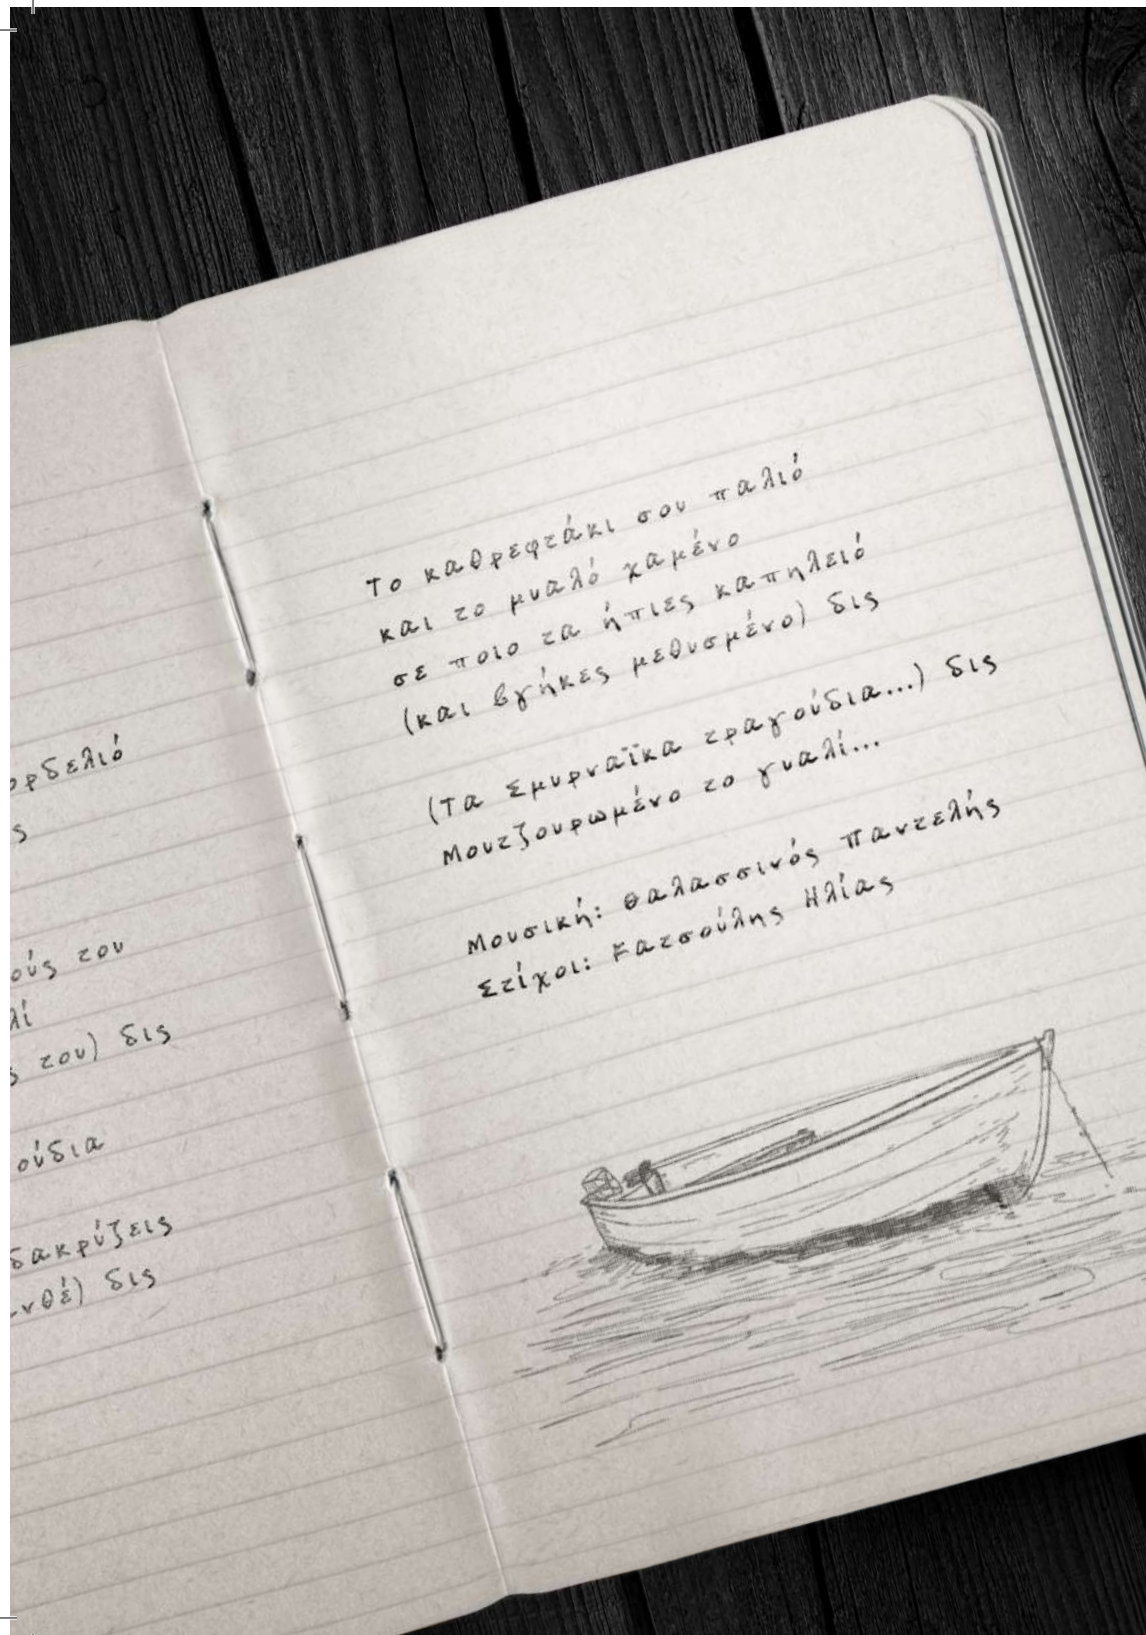 ορδελιό
ς
ούς του
λί
ς του) δις
ούδια
δακρύζεις
νθέ) δις
Το καθρεφτάκι σου παλιό
και το μυαλό χαμένο
σε ποιο τα ήπιες καπηλειό
(και βγήκες μεθυσμένο) δις
(Τα Σμυρναΐικα τραγούδια...) δις
Μουτζουρωμένο το γυαλί...
Μουσική: Θαλασσινός Παντελής
Στίχοι: Κατσούλης Ηλίας